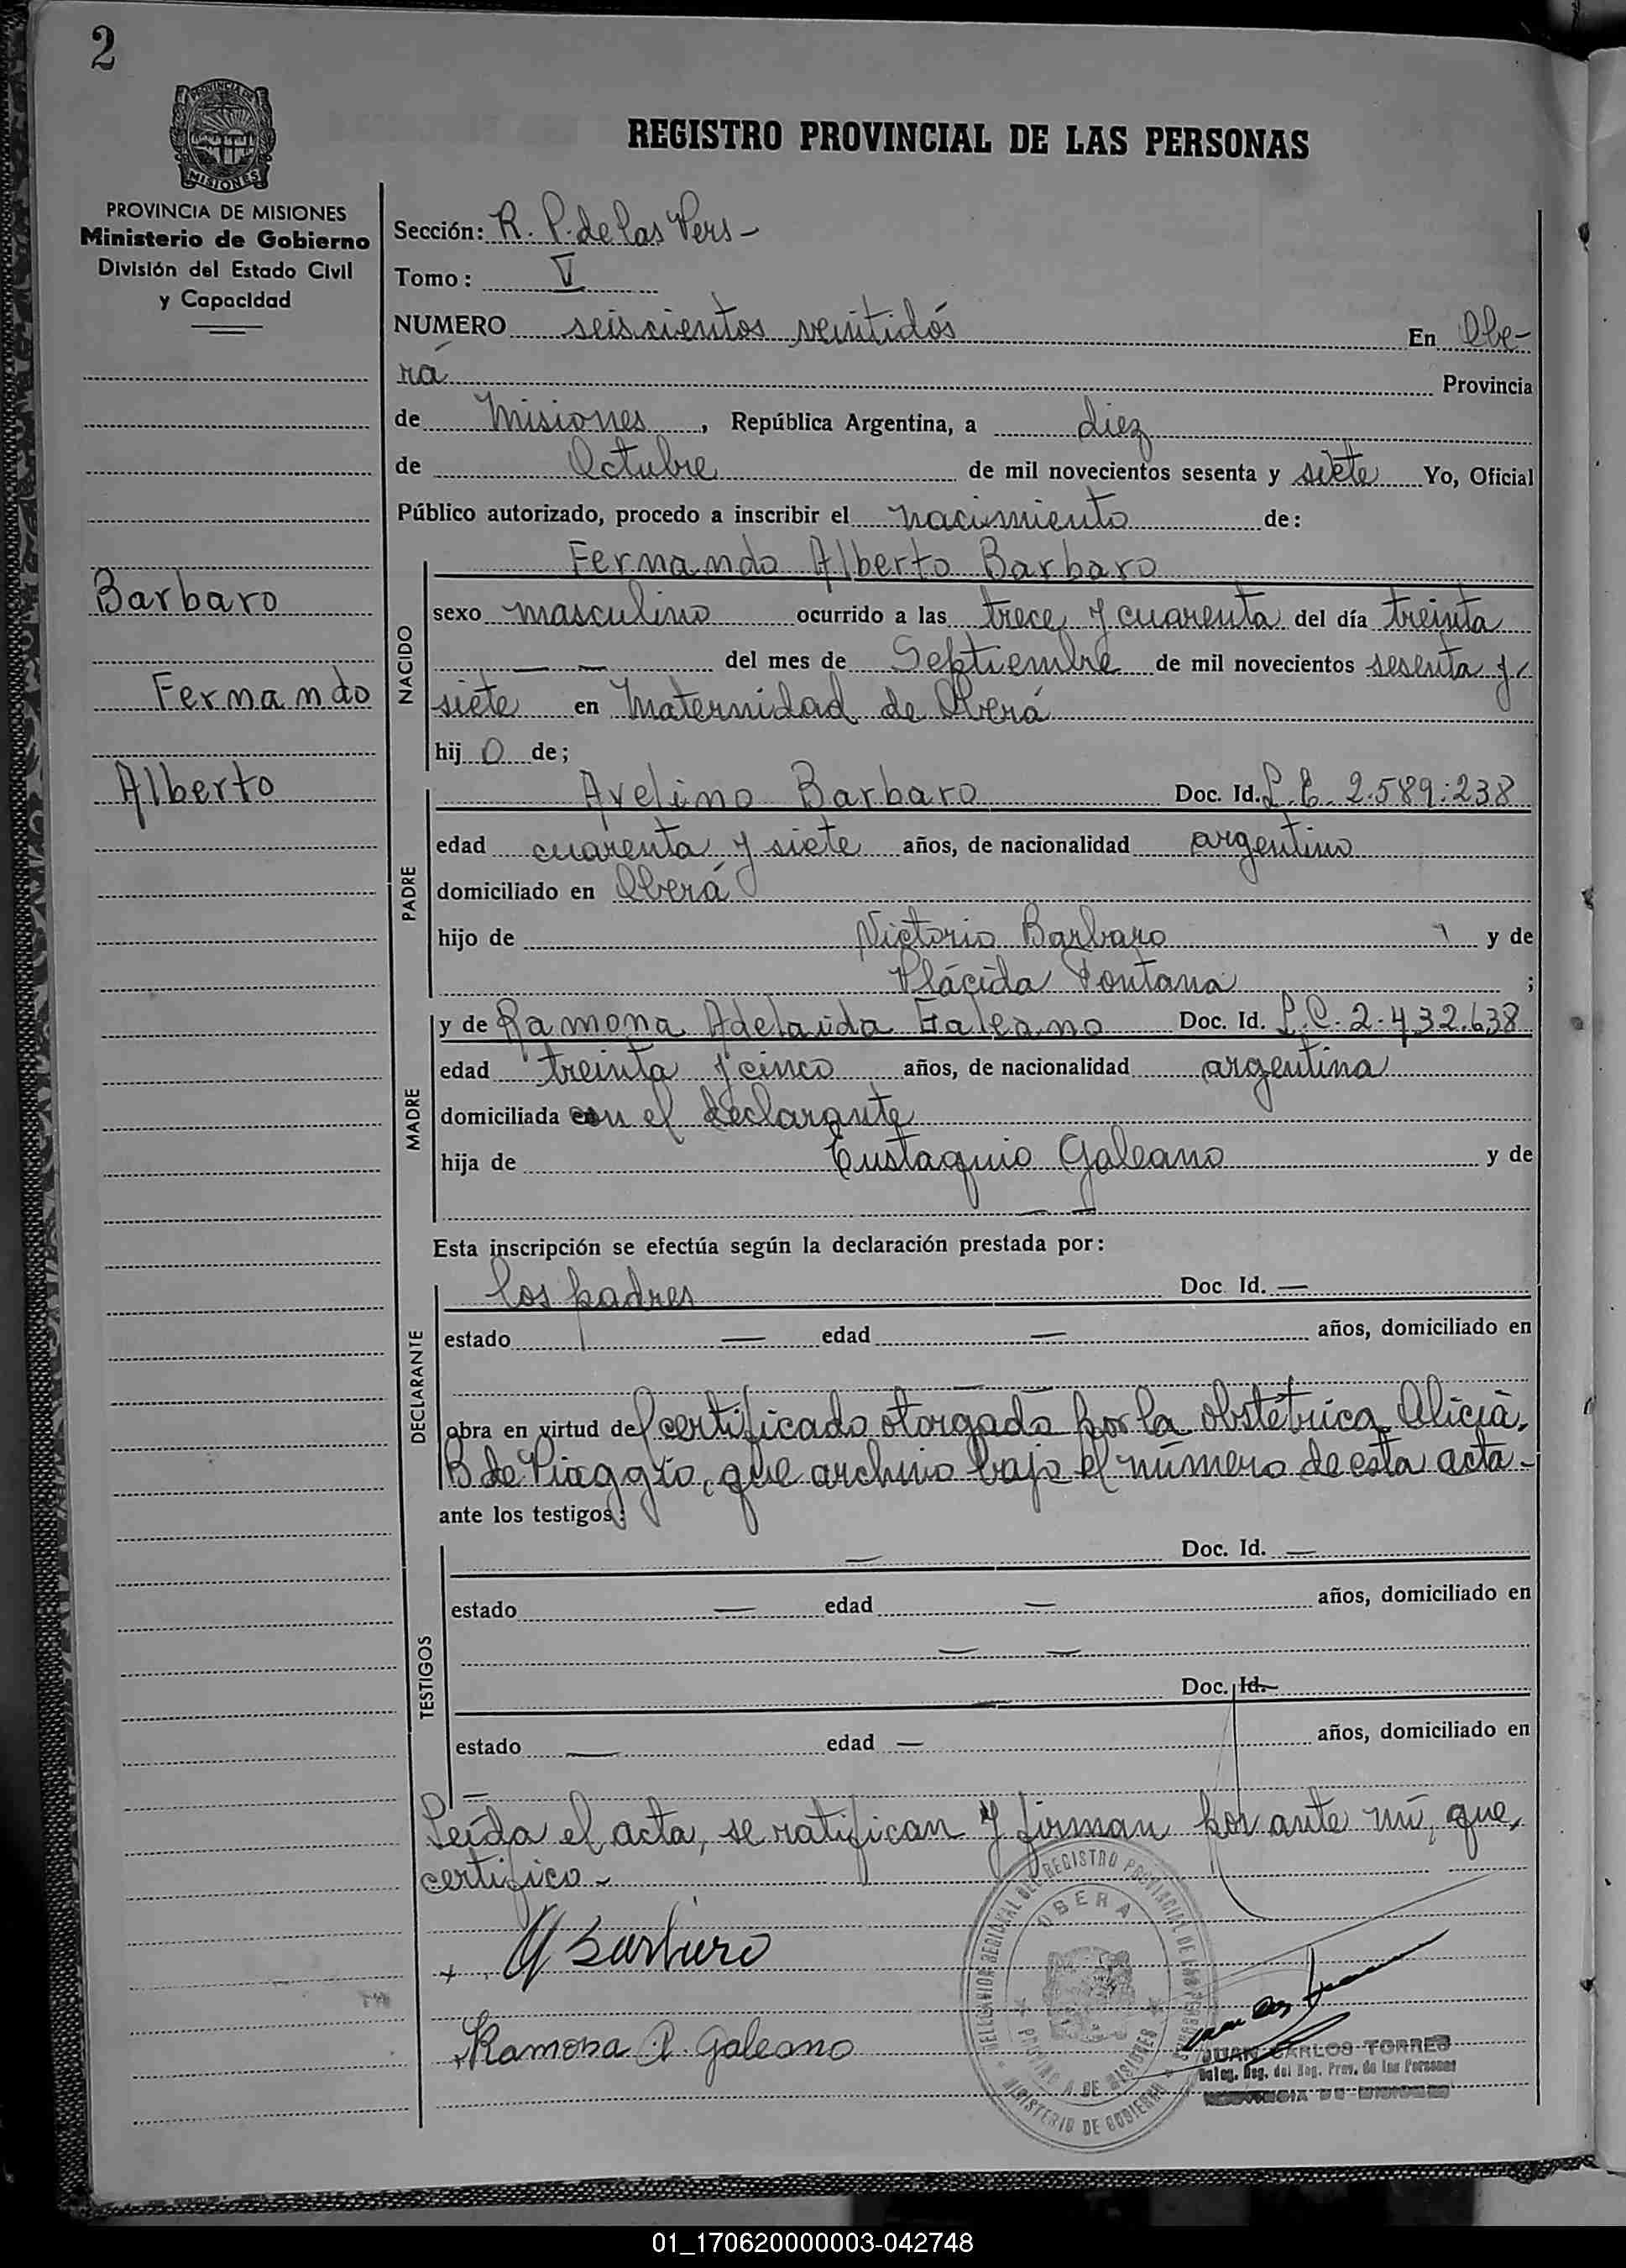 2
PROVINCIA DE MISIONES
PROVINCIA DE MISIONES
Ministerio de Gobierno
División del Estado Civil
y Capacidad
Barbaro
Fernando
Alberto
REGISTRO PROVINCIAL DE LAS PERSONAS
Sección: R. P. de las Pers -
Tomo: V
NUMERO seiscientos veintidós En Obe-
rá Provincia
de Misiones, República Argentina, a diez
de Octubre de mil novecientos sesenta y siete Yo, Oficial
Público autorizado, procedo a inscribir el nacimiento de:
NACIDO
Fernando Alberto Barbaro
sexo masculino ocurrido a las trece y cuarenta del día treinta
— — del mes de Septiembre de mil novecientos sesenta y
siete en Maternidad de Oberá
hij o de;
PADRE
Avelino Barbaro Doc. Id. L.E. 2.589.238
edad cuarenta y siete años, de nacionalidad argentino
domiciliado en Oberá
hijo de Victorio Barbaro y de
Plácida Fontana ;
MADRE
y de Ramona Adelaida Galeano Doc. Id. L.C. 2.432.638
edad treinta y cinco años, de nacionalidad argentina
domiciliada con el declarante
hija de Eustaquio Galeano y de
— —
Esta inscripción se efectúa según la declaración prestada por:
DECLARANTE
los padres Doc. Id. —
estado — edad — años, domiciliado en
— —
obra en virtud del certificado otorgado por la obstétrica Alicia
B de Piaggio, que archivo bajo el número de esta acta -
ante los testigos:
TESTIGOS
— Doc. Id. —
estado — edad — años, domiciliado en
— —
— Doc. Id. —
estado — edad — años, domiciliado en
—
Leída el acta, se ratifican y firman por ante mí, que
certifico -
+ A Barbaro
Ramona A. Galeano
REGIONAL DEL REGISTRO PROVINCIAL DE LAS PERSONAS
OBERA
PROVINCIA DE MISIONES
MINISTERIO DE GOBIERNO
JUAN CARLOS TORRES
Deleg. Reg. del Reg. Prov. de las Personas
PROVINCIA DE MISIONES
01_170620000003-042748